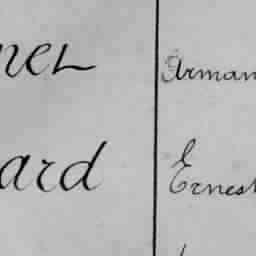 nel Arman
ard Ernest